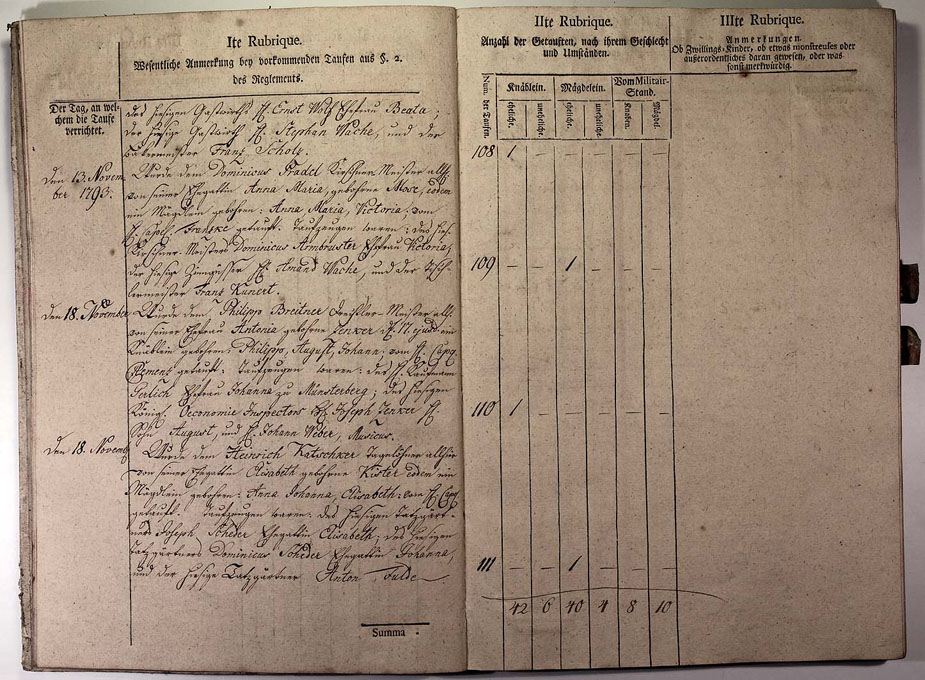 Ite Rubrique.
Wesentliche Anmerkung bey vorkommenden Taufen aus §. 2.
des Reglements.
Der Tag, an wel-
chem die Taufe
verrichtet.
des hiesigen Gastwirths H. Ernst Ehefrau Beata;
der hiesige Gastwirth H. Stephan Wache, und der
Franz Scholz.
den 13. Novem-
ber 1793.
Wurde dem Dominicus Fradel Kirschner Meister allh.
von seiner Ehegattin Anna Maria, gebohrne eodem
ein Mägdlein gebohren: Anna, Maria, Victoria. vom
H. getauft. Taufzeugen waren: des hies.
Kirschner-Meisters Dominicus Armbruster Ehefrau Victoria,
der hiesige Zinngiesser H. Amand Wache, und der Tisch-
lermeister Franz Kunert.
den 18. November
Wurde dem Philipp Breitner Meister allh.
von seiner Ehefrau Antonia gebohrne Zenker d. 17. ejusd. ein
Knäblein gebohren: Philipp, August, Johann: vom H. Cap.
Clement getauft: Taufzeugen waren: des H. Kaufmann
Gerlich Ehefrau Johanna zu Münsterberg; des hiesigen
Königl. Oeconomie Inspectors H. Joseph Zenker H.
Sohn August, und H. Johann Weber, Musicus.
den 18. Novemb.
Wurde dem Heinrich Katschker Tagelöhner allhier
von seiner Ehegattin Elisabeth gebohrne Kister eodem ein
Mägdlein gebohren: Anna Johanna, Elisabeth: vom H. Cap.
getauft. Taufzeugen waren: des hiesigen
Joseph Scheder Ehegattin Elisabeth; des hiesigen
Dominicus Scheder Ehegattin Johanna,
und der hiesige Anton
Summa
IIte Rubrique.
Anzahl der Getauften, nach ihrem Geschlecht
und Umständen.
Num. der Taufen.
Knäblein.
Mägdelein.
Vom Militair-
Stand.
eheliche.
uneheliche.
eheliche.
uneheliche.
Knaben.
Mägdel.
108 1 – – – – –
109 – – 1 – – –
110 1 – – – – –
111 – – 1 – – –
42 6 40 4 8 10
IIIte Rubrique.
Anmerkungen.
Ob Zwillings-Kinder, ob etwas monstreuses oder
außerordentliches daran gewesen, oder was
sonst merkwürdig.